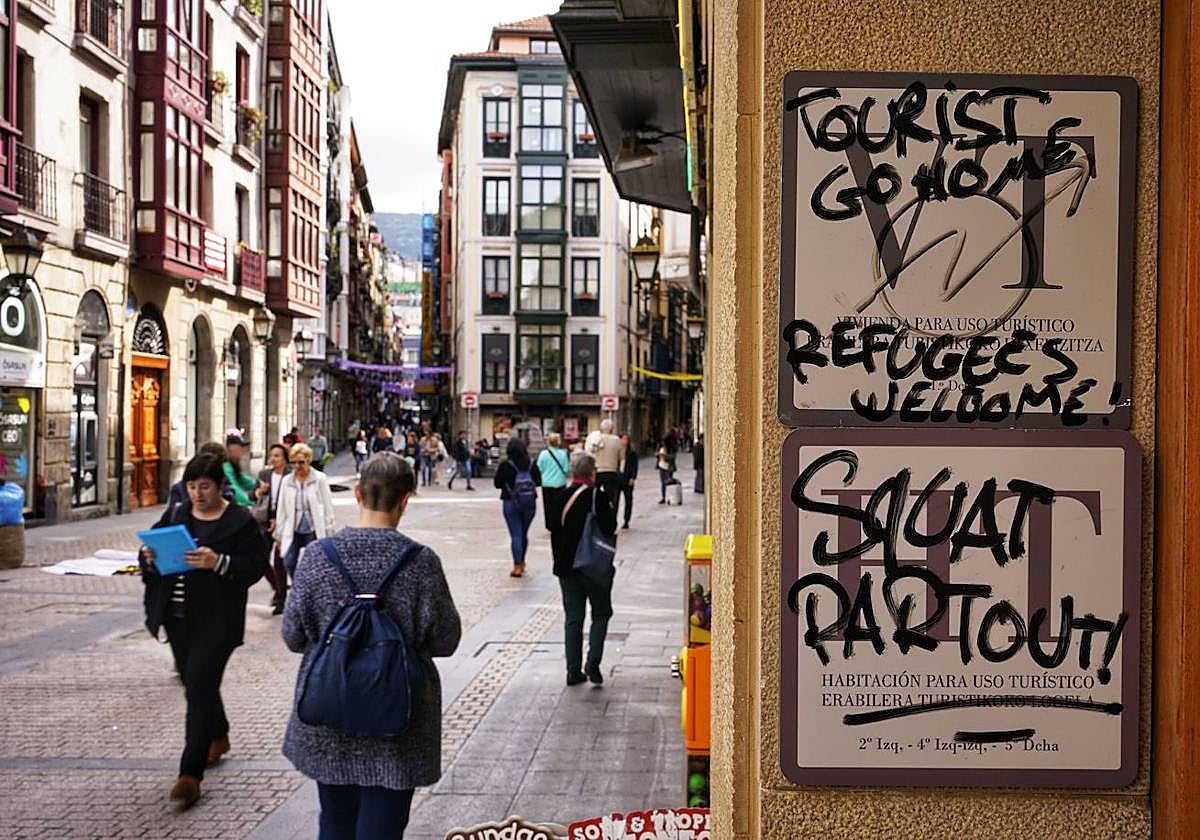 TOURIST
GO HOME,
VT
VIVIENDA PARA USO TURÍSTICO
REFUGEES
WELCOME!
SQUAT
PARTOUT!
HT
HABITACIÓN PARA USO TURÍSTICO
ERABILERA TURISTIKOKO LOGELA
2º Izq, - 4º Izq-izq, - 5º Dcha
OSASUN
CBD